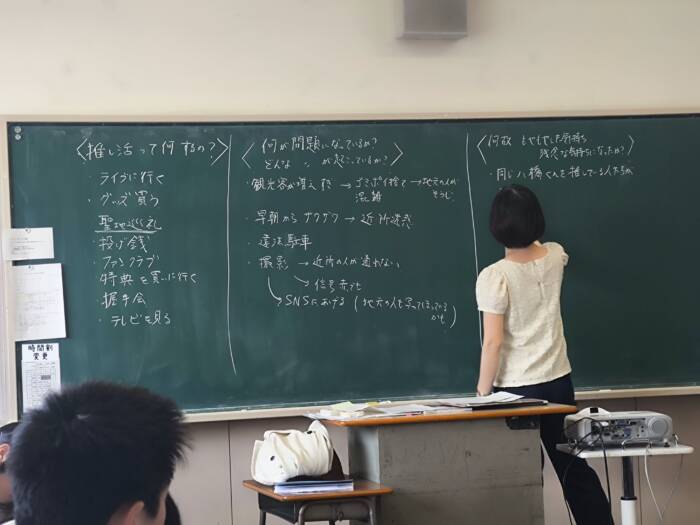 〈推し活って何するの？〉
・ライブに行く
・グッズ買う
聖地巡礼
・投げ銭
・ファンクラブ
・特典を買いに行く
・握手会
・テレビを見る
〈何が問題になっているか？
どんな 〃 が起こっているか？〉
・観光客が増えすぎ→ゴミポイ捨て→地元の人が
混雑 そうじ
・早朝からザワザワ→近所迷惑
・違法駐車
・撮影→近所の人が通れない
→信号赤でも
→SNSにあげる（地元の人も写ってしまっている
かも）
〈何故 もやもやした気持ち
残念な気持ちになったか？〉
・同じ八橋くんを推している人たちが
時間割
変更